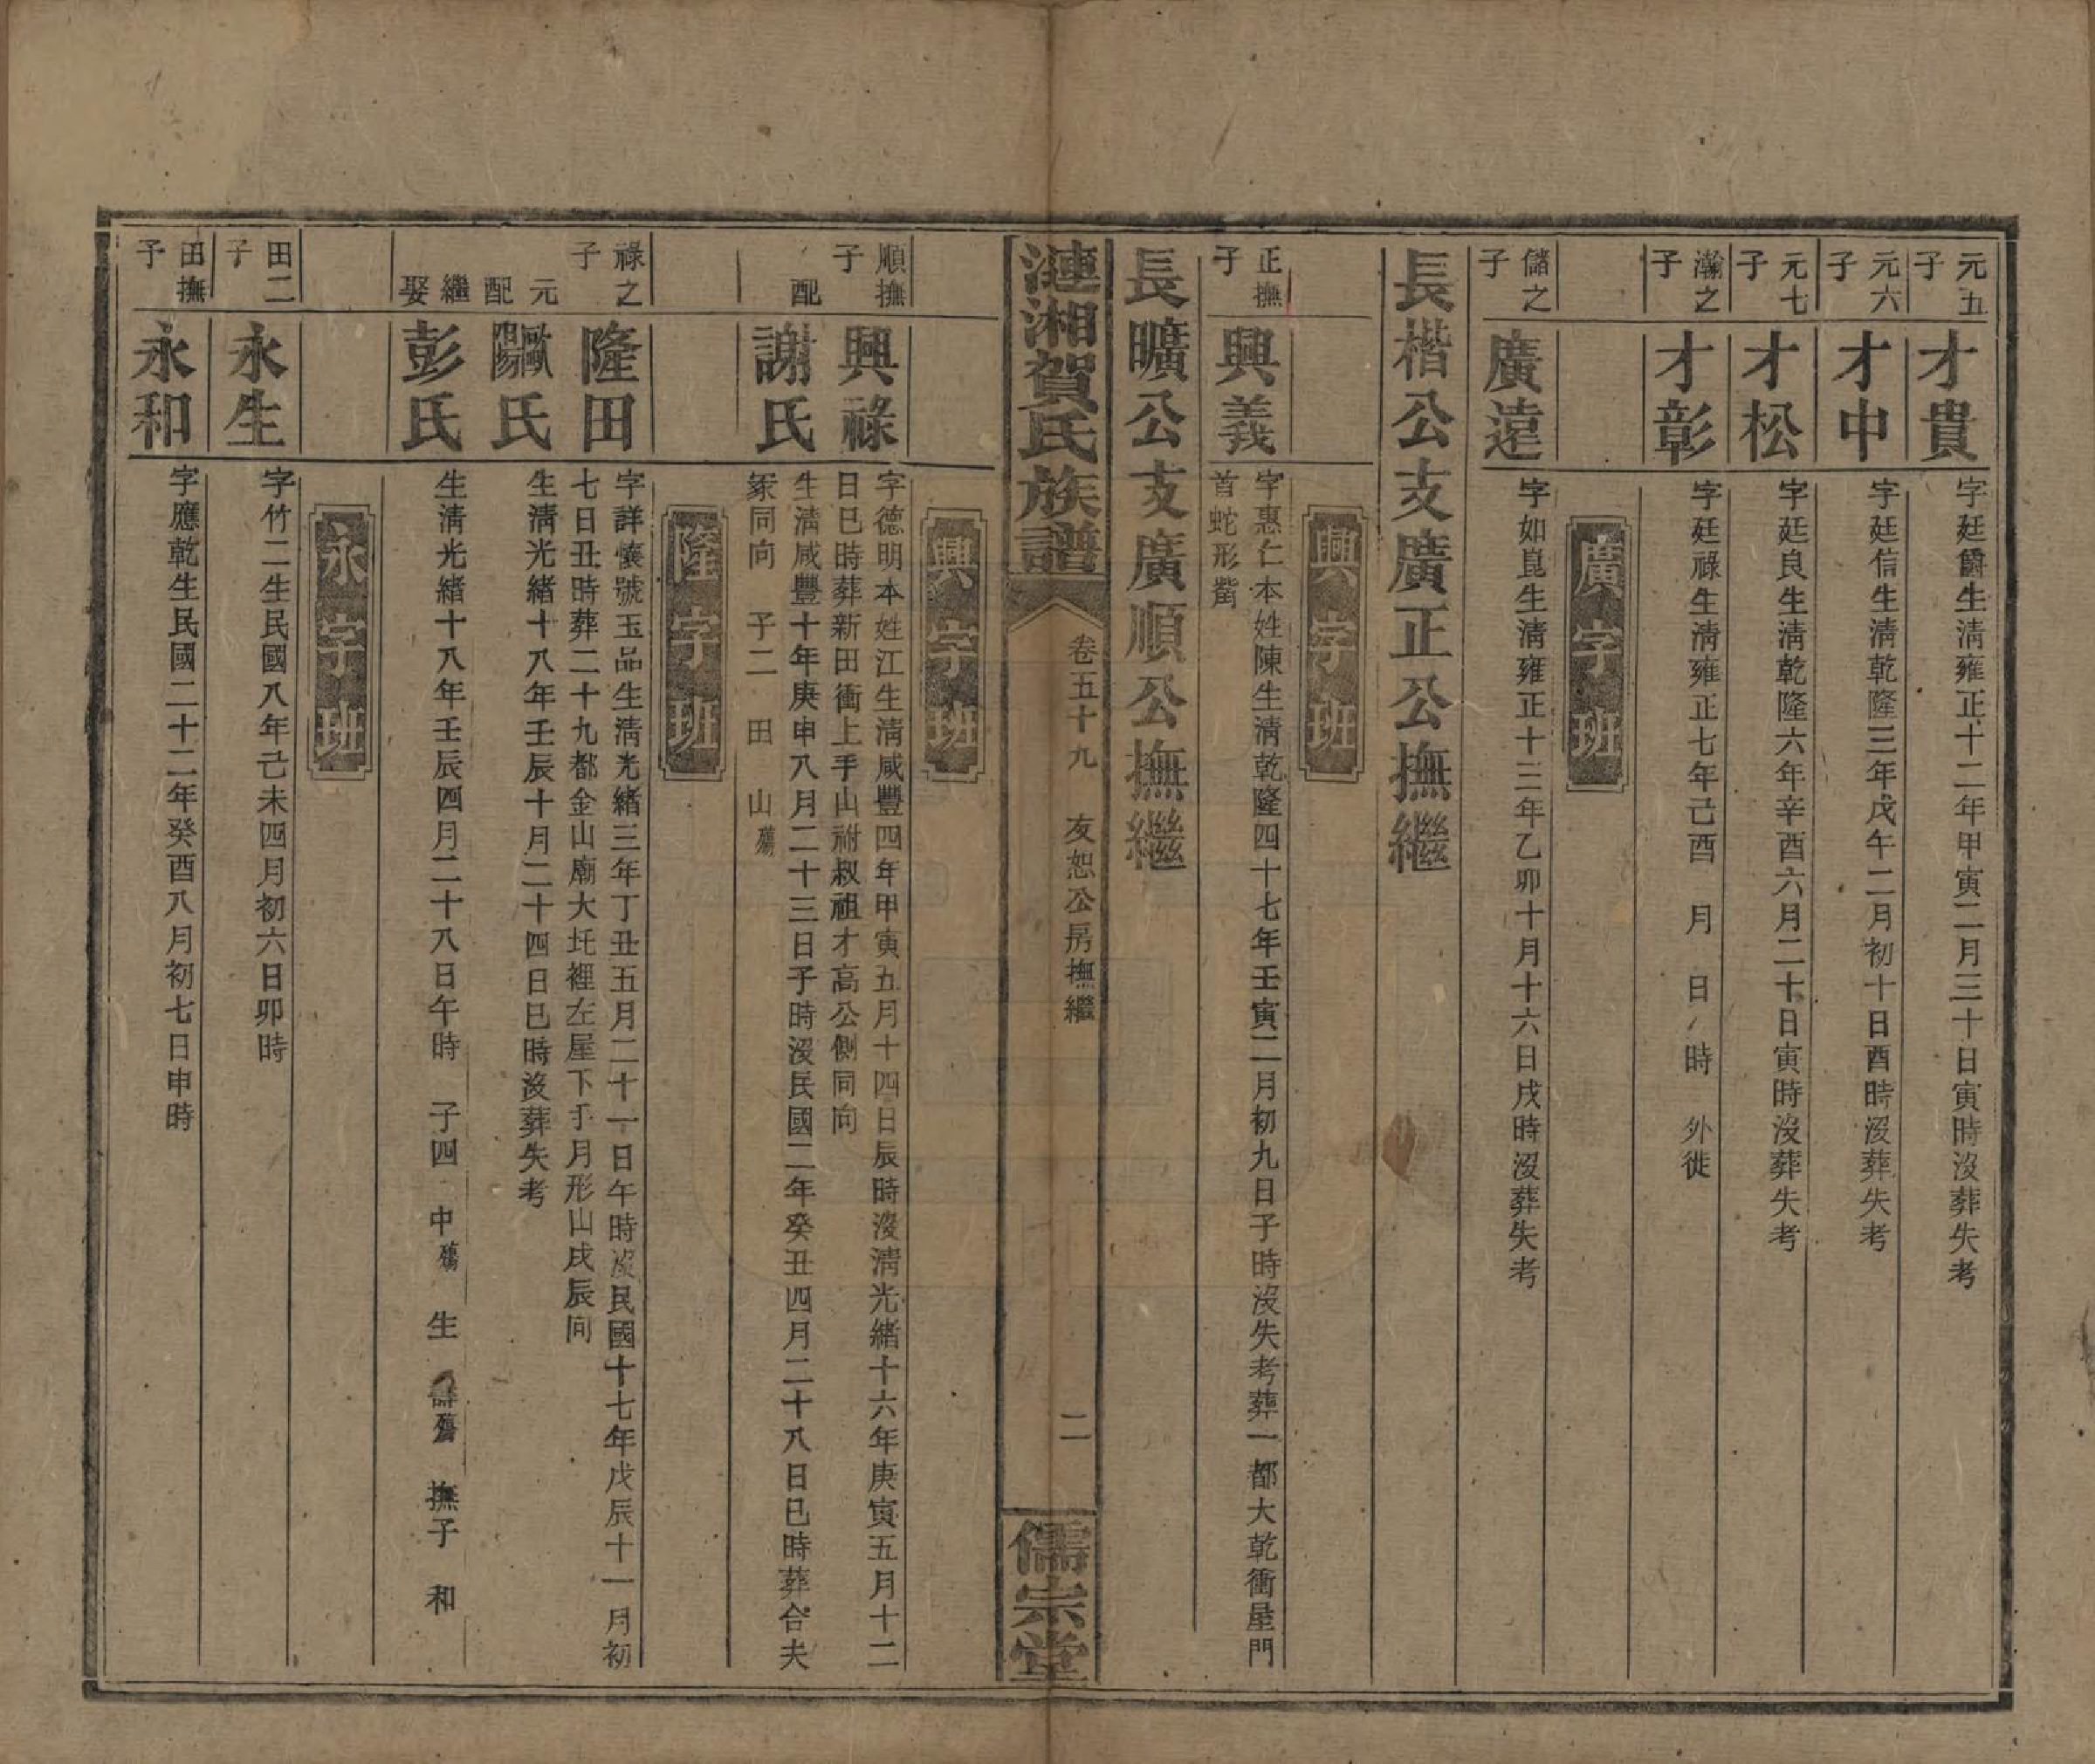 元五子
才貴
字廷爵生清雍正十二年甲寅二月三十日寅時沒葬失考
元六子
才中
字廷信生清乾隆三年戊午二月初十日酉時沒葬失考
元七子
才松
字廷良生清乾隆六年辛酉六月二十日寅時沒葬失考
瀚之子
才彰
字廷祿生清雍正七年己酉 月 日 時 外徙
廣字班
儲之子
廣遠
字如崑生清雍正十三年乙卯十月十六日戌時沒葬失考
長楷公支廣正公撫繼
興字班
正撫子
興義
字惠仁本姓陳生清乾隆四十七年壬寅二月初九日子時沒失考葬一都大乾衝屋門
首蛇形
長曠公支廣順公撫繼
漣湘賀氏族譜
卷五十九 友恕公房撫繼
二
儒宗堂
興字班
順撫子
興祿
字德明本姓江生清咸豐四年甲寅五月十四日辰時沒清光緒十六年庚寅五月十二
日巳時葬新田衝上手山祔叔祖才高公側同向
配
謝氏
生清咸豐十年庚申八月二十三日子時沒民國二年癸丑四月二十八日巳時葬合夫
冢同向 子二 田 山殤
隆字班
祿之子
隆田
字詳懷號玉品生清光緒三年丁丑五月二十一日午時沒民國十七年戊辰十一月初
七日丑時葬二十九都金山廟大圫裡左屋下手月形山戌辰向
元配
歐陽氏
生清光緒十八年壬辰十月二十四日巳時沒葬失考
繼娶
彭氏
生清光緒十八年壬辰四月二十八日午時 子四 中殤 生 殤 撫子 和
永字班
田二子
永生
字竹二生民國八年己未四月初六日卯時
田撫子
永和
字應乾生民國二十二年癸酉八月初七日申時